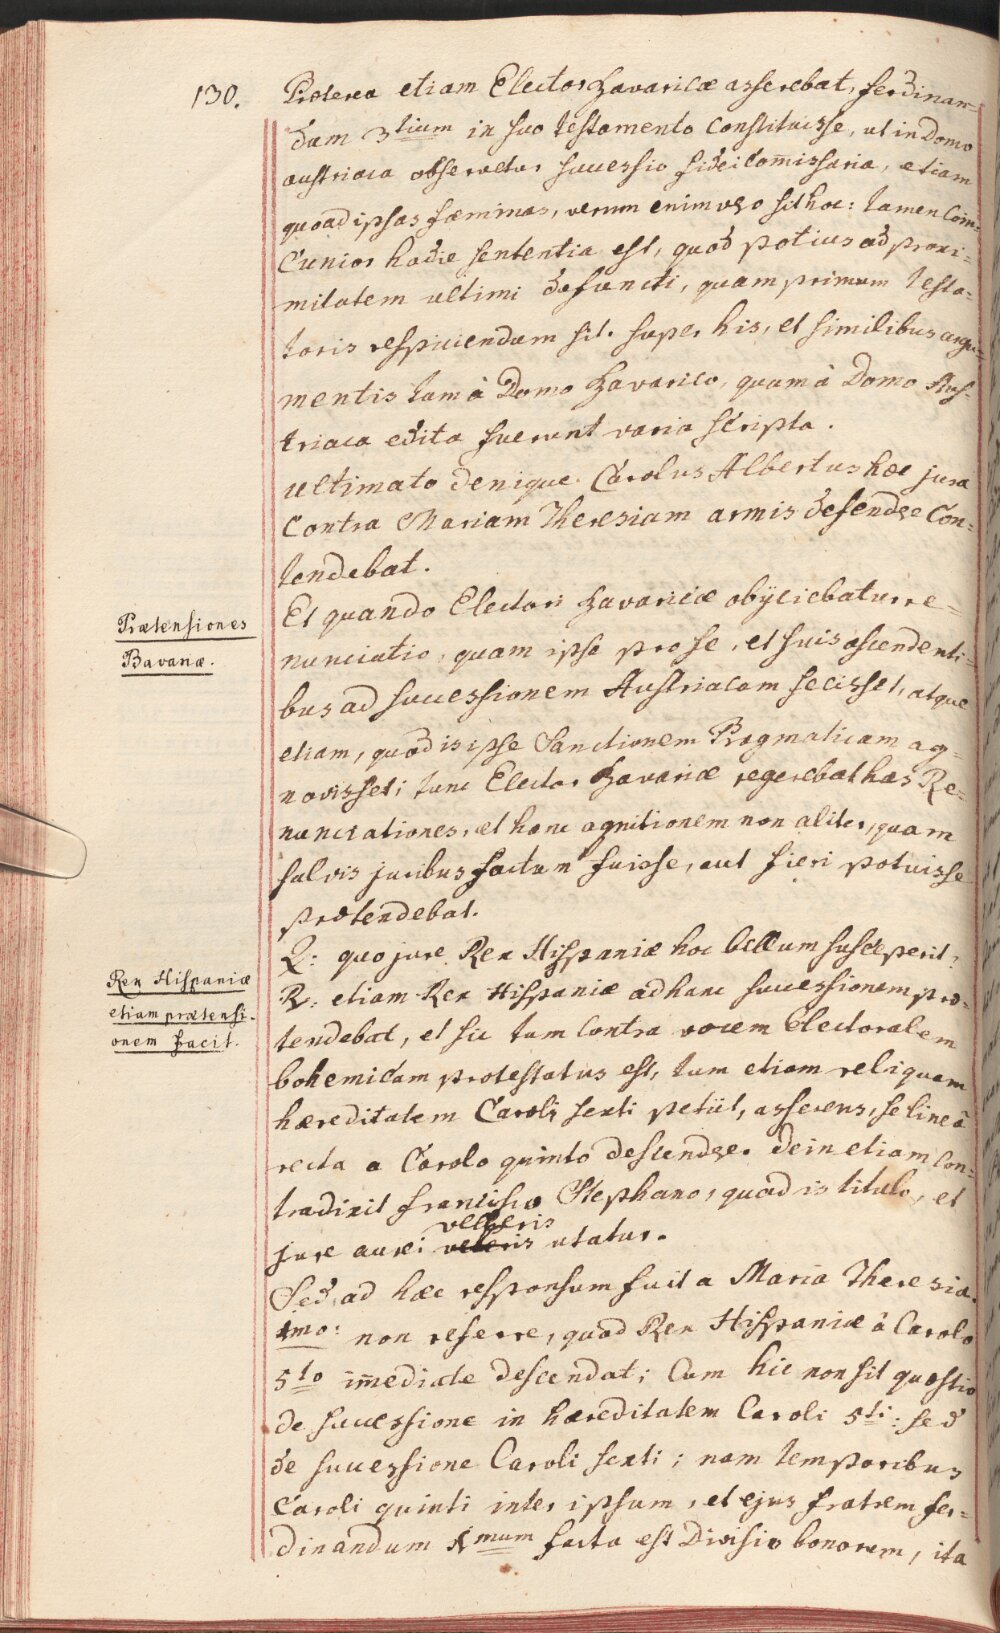 130.
Præterea etiam Elector Bavaricæ asserebat, ferdinan-
dum 3tium in suo testamento constituisse, ut in Domo
austriaca observetur successio fideicom̄issaria, etiam
quoad ipsas fæminas, verum enimvero sit hoc: tamen com-
cunior hodie sententia est, quod potius ad proxi-
mitatem ultimi defuncti, quam primum testa-
toris respiciendum sit. super his, et similibus argu-
mentis tam à Domo Bavarica, quam à Domo Aus-
triaca edita fuerunt varia scripta.
ultimato denique Carolus Albertus hæc jura
contra Mariam Theresiam armis defendere con-
tendebat.
Prætensiones
Bavariæ.
Et quando Electori Bavariæ obÿciebatur re-
nunciatio, quam ipse pro se, et suis ascendenti-
bus ad successionem Austriacam fecisset, atque
etiam, quod is ipse Sanctionem Pragmaticam ag-
novisset; tunc Elector Bavariæ regerebat has Re-
nunciationes, et hanc agnitionem non aliter, quam
salvis juribus factum fuisse, aut fieri potuisse
prætendebat.
Q: quo jure Rex Hispaniæ hoc bellum susceperit?
Rex Hispaniæ
etiam prætensi-
onem facit.
R: etiam Rex Hispaniæ ad hanc successionem præ-
tendebat, et sic tum contra vocem Electoralem
bohemicam protestatus est, tum etiam reliquam
hæreditatem Caroli sexti petiit, asserens, se lineâ
recta a Carolo quinto descendere. dein etiam con-
tradixit francisco Stephano, quod is titulo, et
velleris
jure aurei veteris utatur.
Sed ad hæc responsum fuit a Maria Theresia.
1mo: non referre, quod Rex Hispaniæ â Carolo
5to im̄ediate descendat; Cum hic non sit quæstio
de successione in hæreditatem Caroli 5ti: sed
de successione Caroli sexti; nam temporibus
Caroli quinti inter ipsum, et ejus fratrem fer-
dinandum 1mum facta est Divisio bonorem, ita